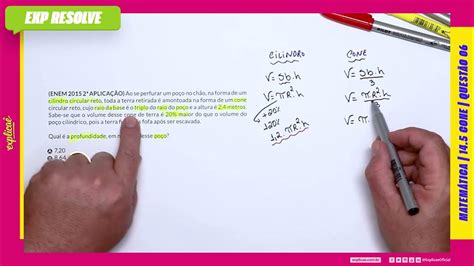 EXP RESOLVE
(ENEM 2015 2ª APLICAÇÃO) Ao se perfurar um poço no chão, na forma de um
cilindro circular reto, toda a terra retirada é amontoada na forma de um cone
circular reto, cujo raio da base é o triplo do raio do poço e a altura é 2,4 metros.
Sabe-se que o volume desse cone de terra é 20% maior do que o volume do
poço cilíndrico, pois a terra fofa após ser escavada.
Qual é a profundidade, em desse poço?
A 7,20
8,64
CILINDRO
V= Sb.h
V= πR².h
+20%
120%
1,2 πR².h
CONE
V= Sb.h
3
V= πR².h
V= π.
explicaê
MATEMÁTICA | 14.5 CONE | QUESTÃO 06
explicae.com.br
@ExplicaeOficial